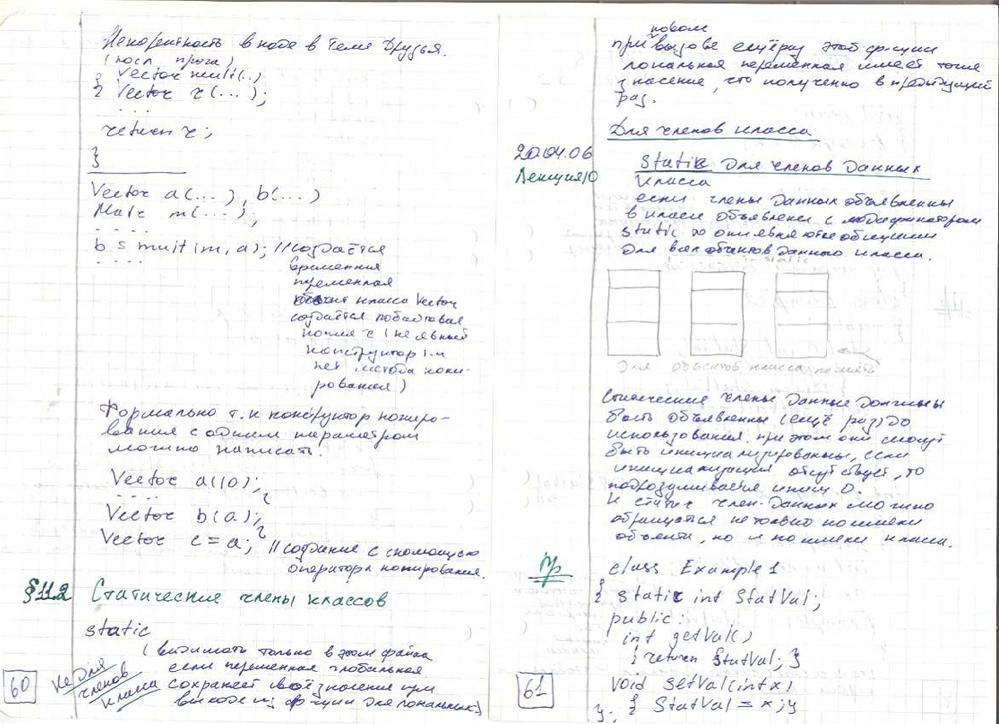 Некоректность в коде в теме Друзья.
(посл прога)
{ Vector mult(..)
{ Vector r(...);
...
return r;
}
Vector a(...), b(...)
Matr m(...);
. . . .
b = mult(m, a); // создаётся
. . . .
временная
переменная
класса Vector
создаётся побайтовая
копия r (не явный
конструктор т.к
нет метода копи-
рования)
Формально т.к конструктор копиро-
вания с одним параметром
можно написать.
Vector a(10);
. . . .
Vector b(a);
Vector c = a; // создание с с помощью
оператора копирования.
§11.2 Статические члены классов
static
(видимать только в этом файле
если переменная глобальная
сохраняет своё значение при
выходе из ф-ции для локальных)
не для
членов
класса
60
новом
при вызове ещё раз этой ф-ции
локальная переменная имеет тоже
значение, что полученно в предыдущий
раз.
Для членов класса
20.04.06
Лекция 10
static для членов данных
класса
если члены данных объявленны
в классе объявлени с модификатором
static то они являются общими
для всех объектов данного класса.
Для объектов класса память
Статические члены данные должны
быть объявленны (ещё раз) до
использования. при этом они могут
быть инициализированны, если
инициализация отсутствует, то
подразумивается иниц 0.
К статич член-данных можно
обращатся не только по имени
объекта, но и по имени класса.
Пр
class Example1
{ static int StatVal;
public:
int getVal()
{ return StatVal; }
void SetVal(int x)
{ StatVal = x; }
};
61